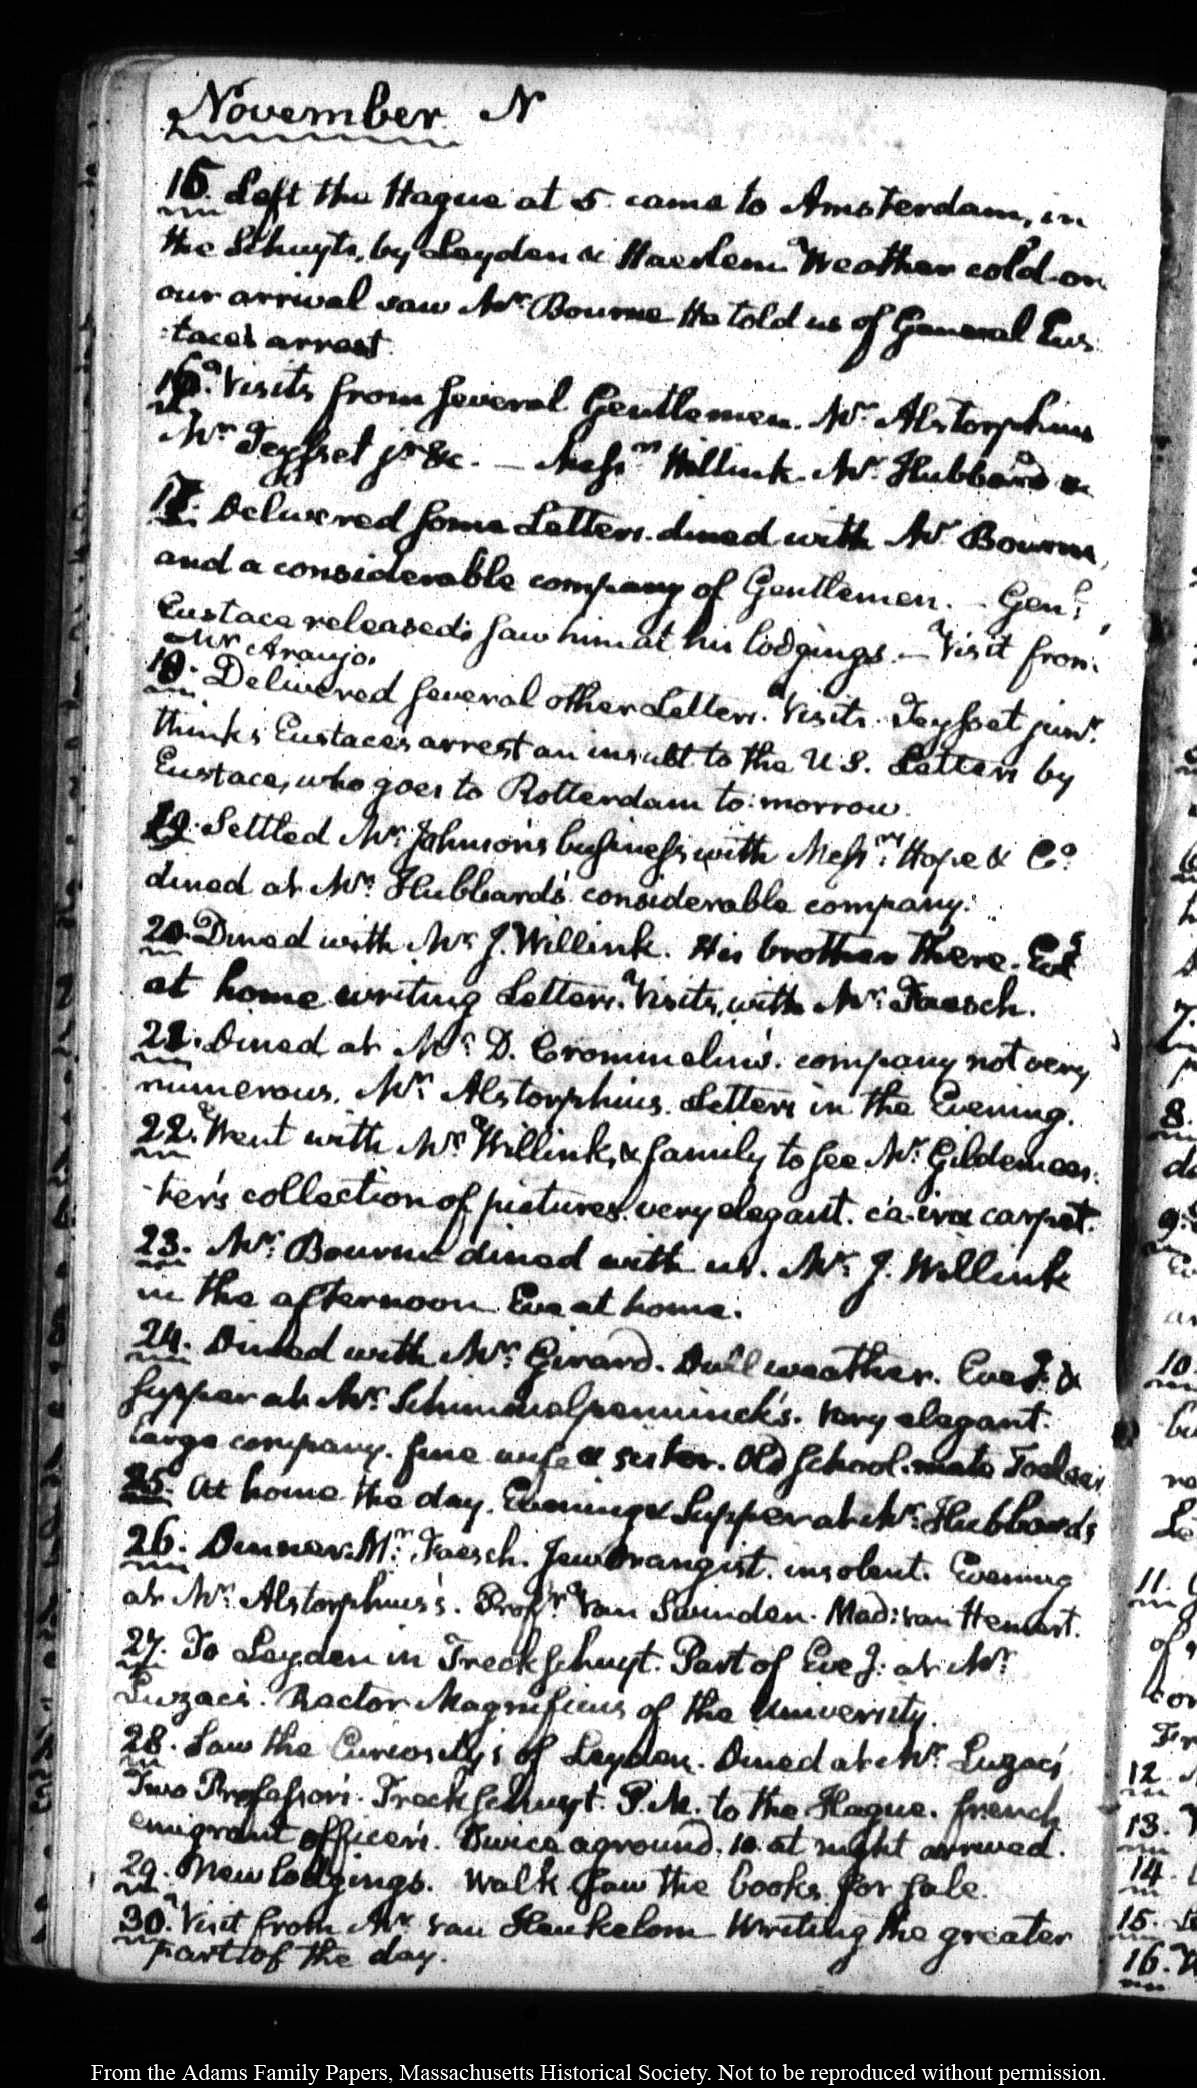 November N
15. Left the Hague at 5. came to Amsterdam, in
the Schuyts, by Leyden & Haerlem. Weather cold. on
our arrival saw Mr. Bourne He told us of General Eus-
tace's arrest.
16. Visits from several Gentlemen. Mr. Alstorphius
Mr Teysset jr. &c. — Messrs Willink. Mr. Hubbard &c
17. Delivered some Letters. dined with Mr Bourne,
and a considerable company of Gentlemen. — Genl:
Eustace released: saw him at his lodgings. — Visit from
Mr Araujo.
18. Delivered several other Letters. Visits. Teysset junr.
thinks Eustace's arrest an insult to the U.S. Letters by
Eustace, who goes to Rotterdam to-morrow.
19. Settled Mr. Johnson's business with Messrs: Hope & Co.
dined at Mr. Hubbard's. considerable company.
20. Dined with Mr J. Willink. His brother there. Eve
at home writing Letters. Visits, with Mr. Faesch.
21. Dined at Mr: D. Crommelin's. company not very
numerous. Mr. Alstorphius. Letters in the Evening.
22. Went with Mr. Willink, & family to see Mr. Gildemees-
-ter's collection of pictures. very elegant. ça-ira carpet.
23. Mr. Bourne dined with us. Mr. J. Willink
in the afternoon Eve at home.
24. Dined with Mr. Girard. Dull weather. Eveg. &
supper at Mr. Schimmelpenninck's. very elegant.
large company. fine wife & sister. Old School-mate
25. At home the day. Evening & Supper at Mr. Hubbard's
26. Dinner. Mr. Faesch. Jew Orangist. insolent. Evening
at Mr. Alstorphius's. Profr. Van Swinden. Mad: van Hemert.
27. To Leyden in Treckschuyt. Part of Eveg: at Mr
Luzac's. Rector Magnificus of the University.
28. Saw the Curiosity's of Leyden. Dined at Mr. Luzac's
Two Professors. Treckschuyt. P.M. to the Hague. french
emigrant officers. Twice aground. 10 at night arrived.
29. New lodgings. Walk saw the books for sale.
30. Visit from Mr van Heukelom Writing the greater
part of the day.
8.
9.
10.
11.
12.
13.
14.
15.
16.
From the Adams Family Papers, Massachusetts Historical Society. Not to be reproduced without permission.